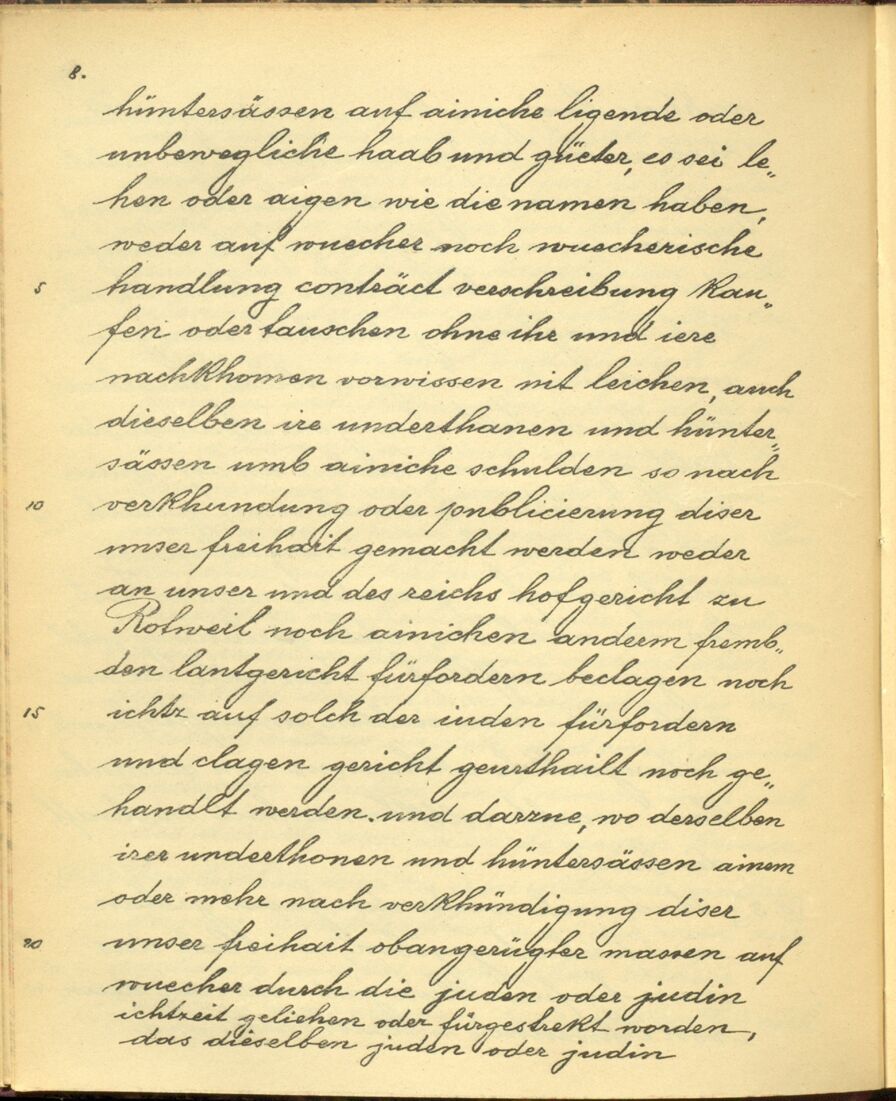 8.
hüntersässen auf ainiche ligende oder
unbewegliche haab und güeter, es sei le„
hen oder aigen wie die namen haben,
weder auf wuecher noch wuecherische
5 handlung conträct verschreibung kau„
fen oder tauschen ohne ihr und iere
nachkhomen vorwissen nit leichen, auch
dieselben ire underthanen und hünter„
sässen umb ainiche schulden so nach
10 verkhundung oder publicierung diser
unser freihait gemacht werden weder
an unser und des reichs hofgericht zu
Rotweil noch ainichen anderm fremb„
den lantgericht fürfordern beclagen noch
15 ichtz auf solch der iuden fürfordern
und clagen gericht geurthailt noch ge„
handlt werden. und darzue, wo derselben
irer underthonen und hüntersässen ainem
oder mehr nach verkhündigung diser
20 unser freihait obangerügter massen auf
wuecher durch die juden oder judin
ichtzeit geliehen oder fürgestrekt worden,
das dieselben juden oder judin